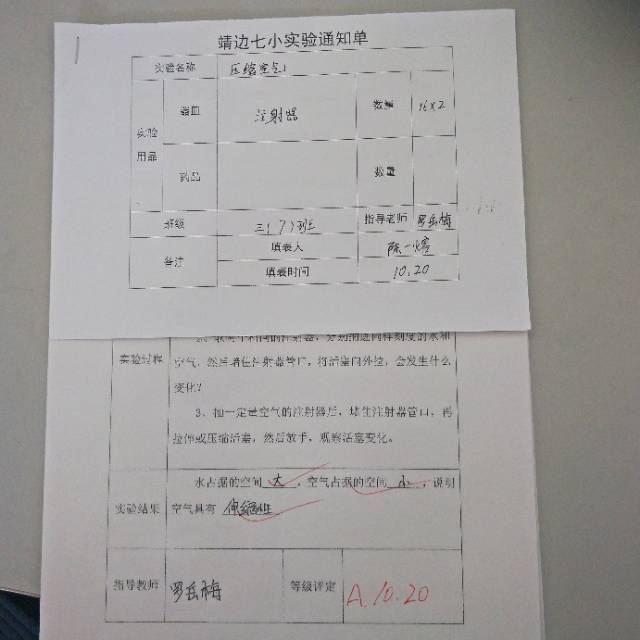 靖边七小实验通知单
实验名称 压缩空气
实验用品 器皿 注射器 数量 16×2
药品 数量
班级 三（7）班 指导老师 罗岳梅
备注 填表人 陈一
填表时间 10.20
实验过程
空气，然后堵住注射器管口，将活塞向外拉，会发生什么
变化？
3、抽一定量空气的注射器后，堵住注射器管口，再
拉伸或压缩活塞，然后放手，观察活塞变化。
实验结果 水占据的空间 大 ，空气占据的空间 小 ，说明
空气具有 伸缩性
指导教师 罗岳梅 等级评定 A.10.20